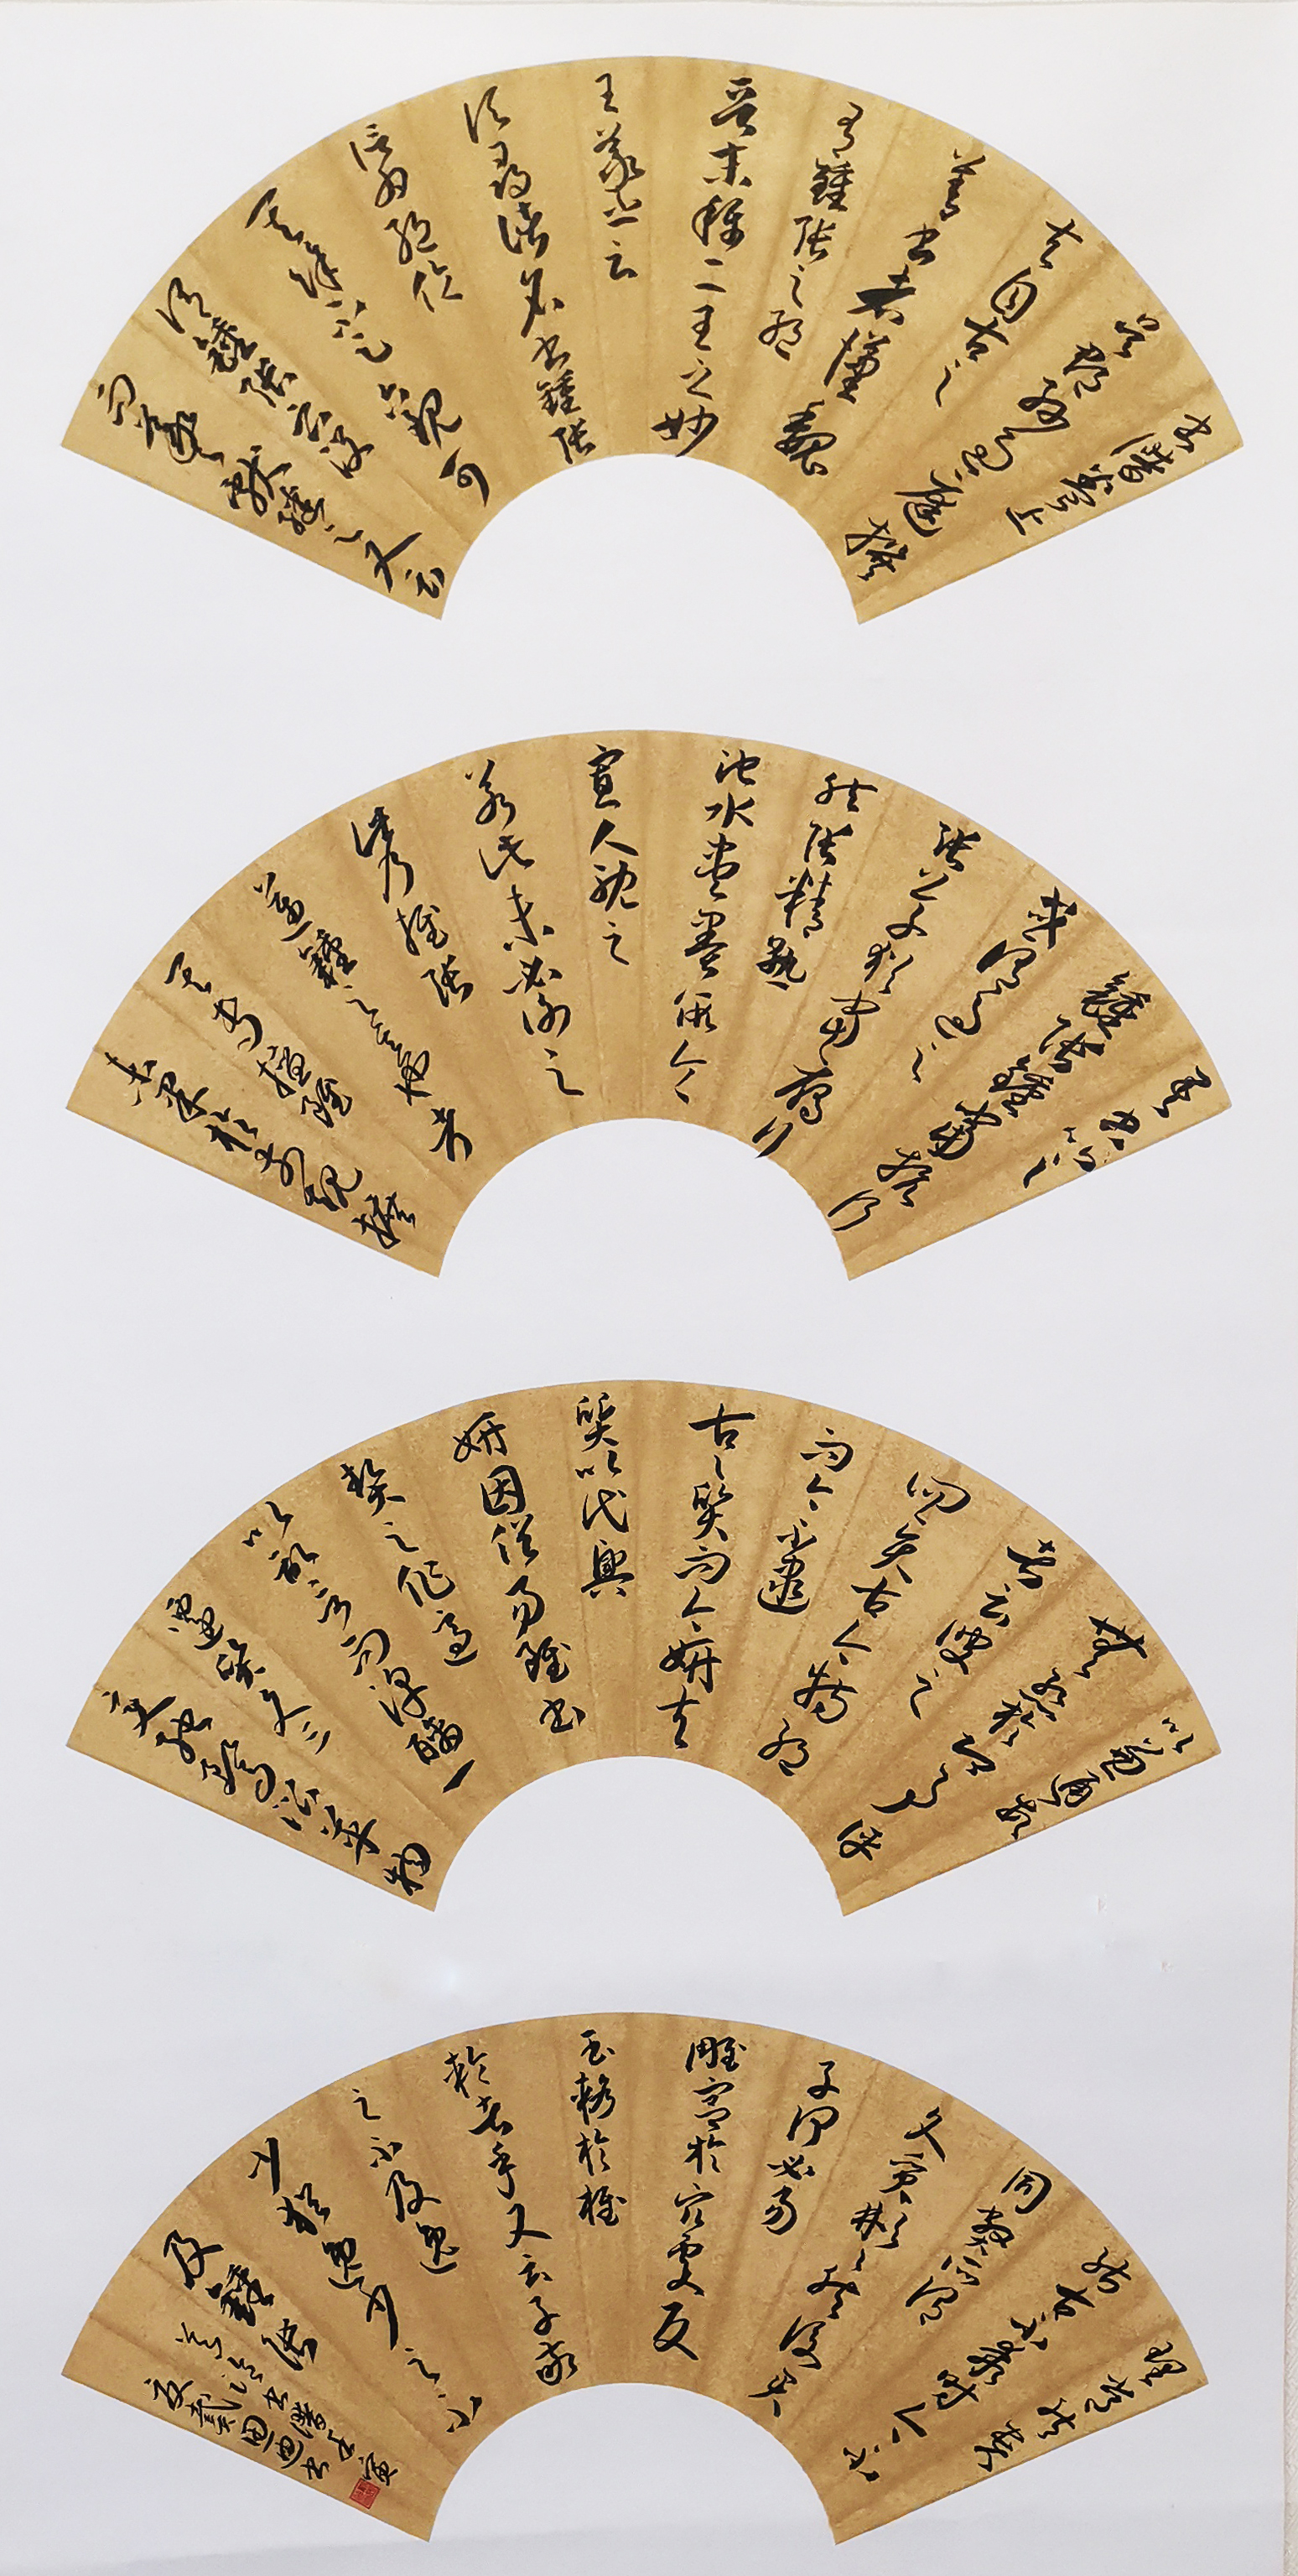 書譜卷上
吳郡孫過庭撰
夫自古之
善書者漢魏
有鍾張之絕
晉末稱二王之妙
王羲之云
頃尋諸名書鍾張
信為絕倫
其餘不足觀可
謂鍾張云沒
而羲獻繼之又云
吾書比之
鍾張鍾當抗行
或謂過之
張草猶當雁行
然張精熟
池水盡墨假令
寡人耽之
若此未必謝之
此乃推張
邁鍾之意也考
其專擅雖
未果於前規摭
以兼通故
無慚於即事評
者云彼之
四賢古今特絕
而今不逮
古古質而今妍夫
質以代興
妍因俗易雖書
契之作適
以記言而淳醨一
遷質文三
變馳騖沿革物
理常然貴
能古不乖時今不
同弊所謂
文質彬彬然後君
子何必易
雕宮於穴處反
玉輅於椎
輪者乎又云子敬
之不及逸
少猶逸少之不
及鍾張
書譜壬寅
夏戴思迪書